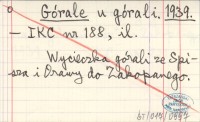 Górale u górali. 1939.
– IKC nr 188, il.
Wycieczka górali ze Spi-
sza i Orawy do Zakopanego.